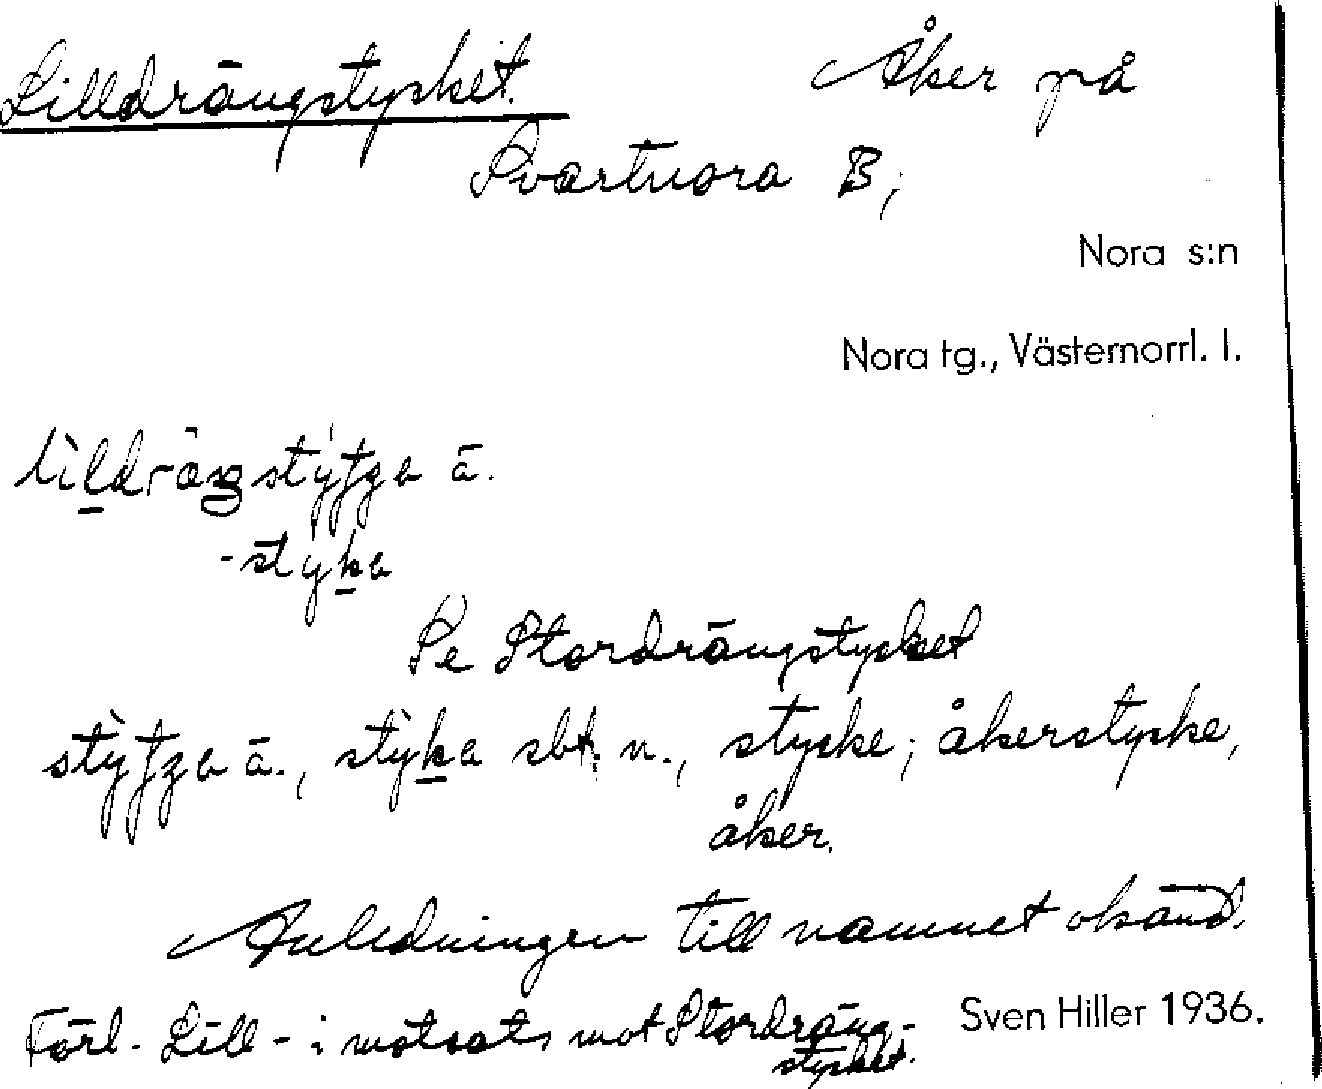 Lilldrängstycket. Åker på
Svartnora B;
Nora s:n
Nora tg., Västernorrl. l.
Se Stordrängstycket
sbt. n., stycke; åkerstycke,
åker.
Anledningen till namnet okänd.
Förl. Lill- i motsats mot Stordräng-
stycket.
Sven Hiller 1936.